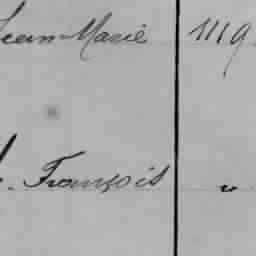 Jean-Marie 1119
François "